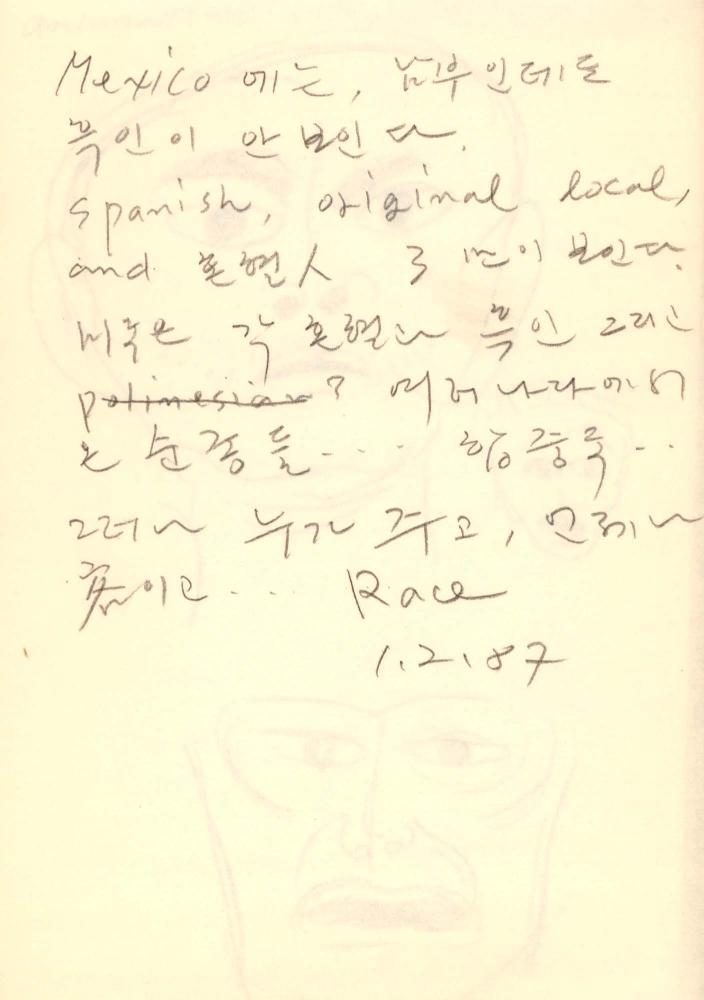 Mexico 에는, 남부인데도
흑인이 안 보인다.
spanish, original local,
and 혼혈人 3 면이 보인다.
미국은 각 혼혈과 흑인 그리고
polinesian? 여러 나라에서
온 순종들... 합중국..
그러나 누가 주고, 언제나
客이고... Race
1.2.87